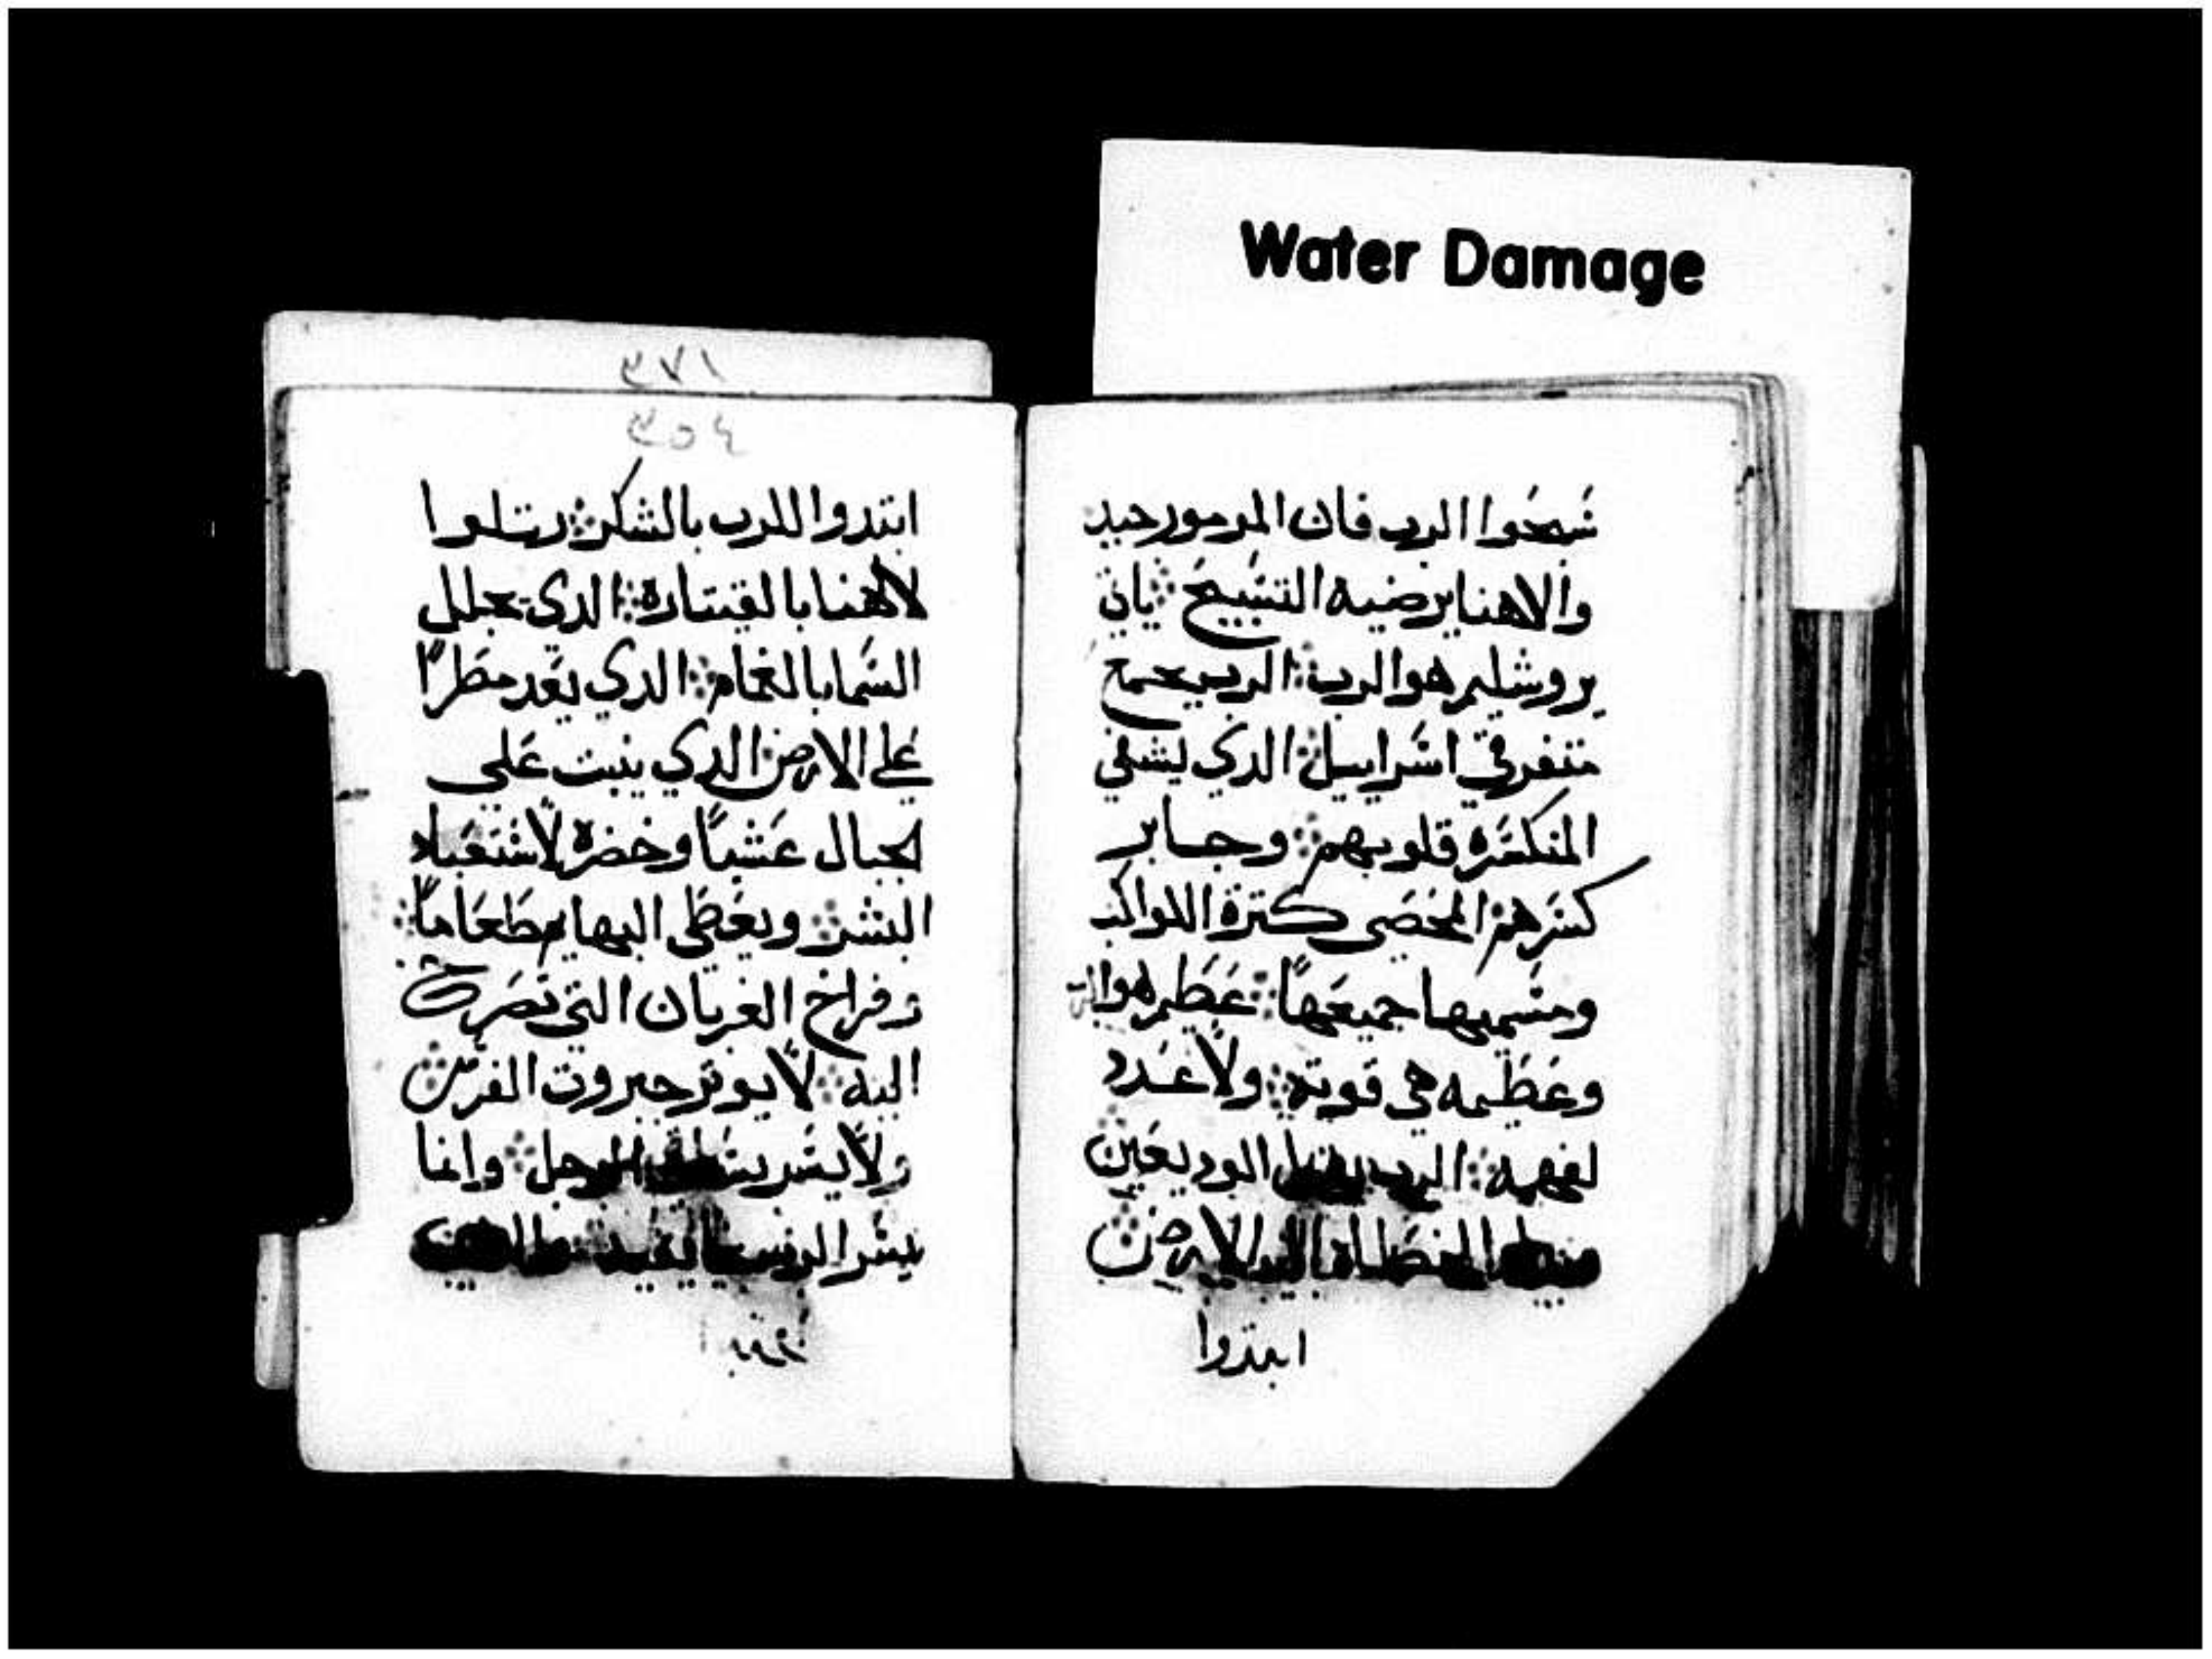 Water Damage
سبحوا الرب فان المزمور جيد
والاهنا يرضيه التسبيح ياني
يروشليم هو الرب الرب يجمع
متفرقي اسراييل الذي يشفي
المنكسره قلوبهم وجابر
كسرهم المحصي كترة الكواكب
ومسميها جميعها عظيم هو الرب
وعظيمه هي قوته ولا عدد
لفهمه الرب يقبل الوديعين
الخطاه الي الارض
ابتدوا
٣٧١
٣٥٤
ابتدوا للرب بالشكر رتلوا
لالهنا بالقيتاره الدي يجلل
السما بالغمام الدي يعد مطرًا
علي الارض الدي ينبت علي
الجبال عشبًا وخضرة لاستعباد
البشر ويعطي البهايم طعامًا
وفراخ الغربان التي تصرخ
اليه لا يوتر جبروت الفرس
ولا يسر الرجل وانما
يسر الرب